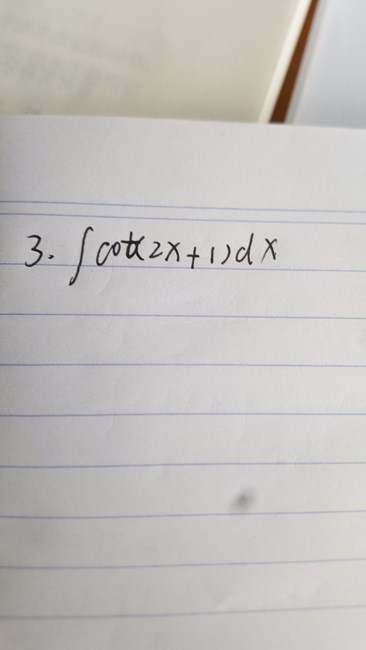 3. ∫cot(2x+1)dx